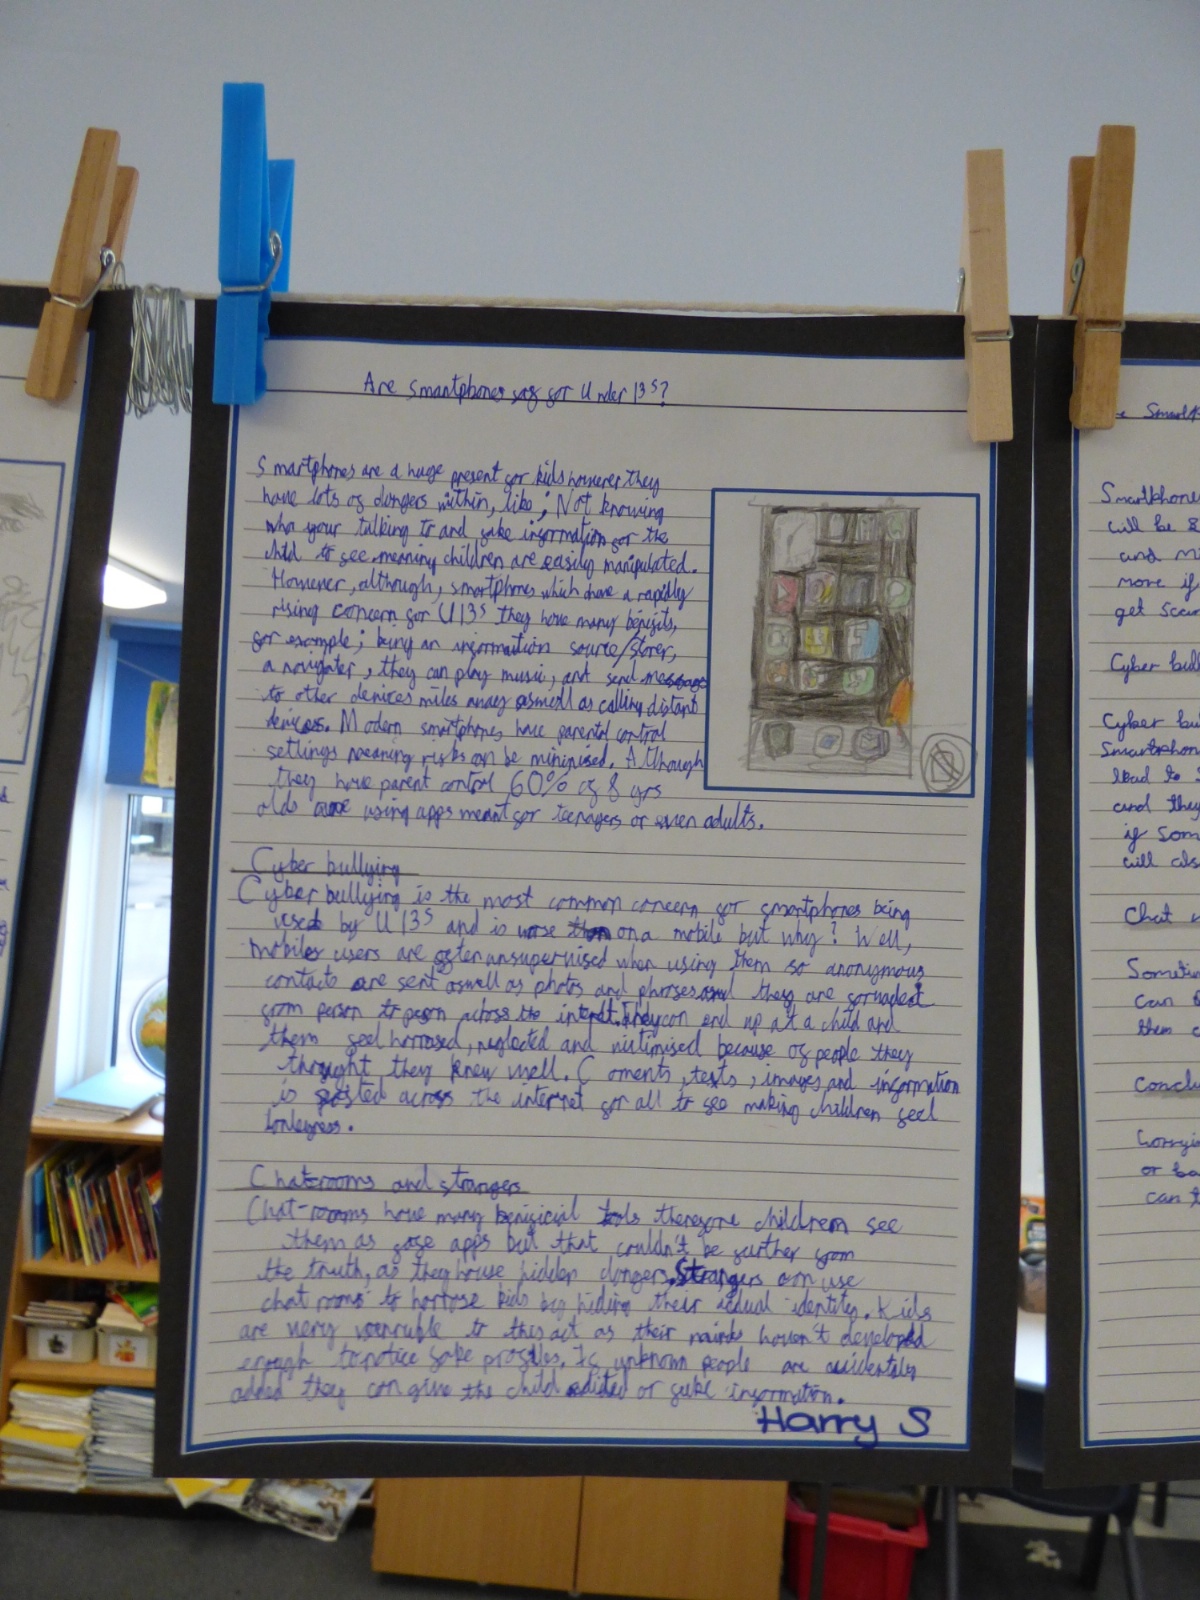 Are smartphones safe for Under 13s?
Smartphones are a huge present for kids however they
have lots of dangers within, like; Not knowing
who your talking to and fake information for the
child to see meaning children are easily manipulated.
However, although, smartphones which have a rapidly
rising concern for U13s they have many benifits,
for example; being an information source/storer,
a navigater, they can play music, and send message
to other devices miles away aswell as calling distant
devices. Modern smartphones have parental control
settings meaning risks can be minimised. Although
they have parent control 60% of 8 yrs
olds are using apps meant for teenagers or even adults.
Cyber bullying
Cyber bullying is the most common concern for smartphones being
used by U13s and is worse on a mobile but why? Well,
mobile users are often unsupervised when using them so anonymous
contacts are sent aswell as photos and phrases and they are forwadest
from person to person across the internet. They can end up at a child and
them feel harrased, neglected and victimised because of people they
thought they knew well. Coments, texts, images and information
is posted across the internet for all to see making children feel
lonleyness.
Chatrooms and strangers
Chat-rooms have many benificial tools therefore children see
them as safe apps but that couldn't be further from
the truth, as they have hidden dangers. Strangers can use
chat rooms to kids by hiding their actual identity. Kids
are very to this act as their minds haven't developed
enough to notice fake profiles. If unknown people are accidentaly
added they can give the child edited or fake information.
Harry S
Smartphones
will be
and
more if
get
Cyber
Cyber
Smartphon
lead to
and they
if
will
Chat
can
them
or
can